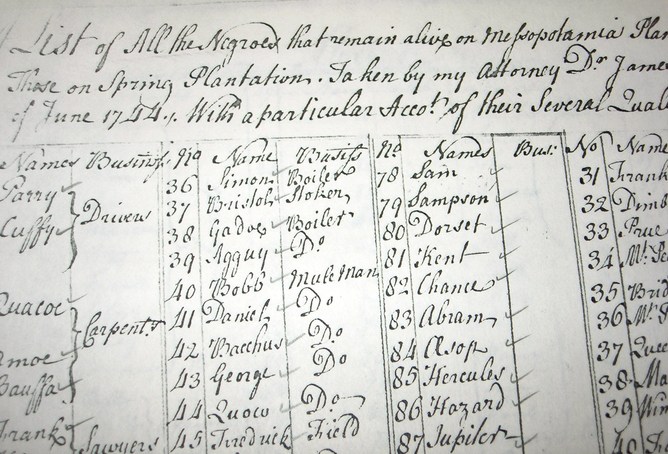 A List of All the Negroes that remain alive on Messopotamia Plan
Those on Spring Plantation. Taken by my Attorney Dr. James
of June 1744. With a particular Accot. of their Several Qual
Names Business No Name Busiss No Names Bus: No Name
Parry 36 Simon Boiler 78 Sam 31 Frank
Cuffy Drivers 37 Bristol Stoker 79 Sampson 32 Dimb
38 Gadoe Boiler 80 Dorset 33 Prue
39 Agguy Do 81 Kent 34
40 Bobb Mule Man 82 Chance 35 Brid
Quacoe Carpentrs 41 Daniel Do 83 Abram 36
42 Bacchus Do 84 Æsop 37
43 George Do 85 Hercules 38 Ma
Bauffa 44 Quow Do 86 Hazard 39 Win
Frank Sawyers 45 Fredrick Field 87 Jupiter 40